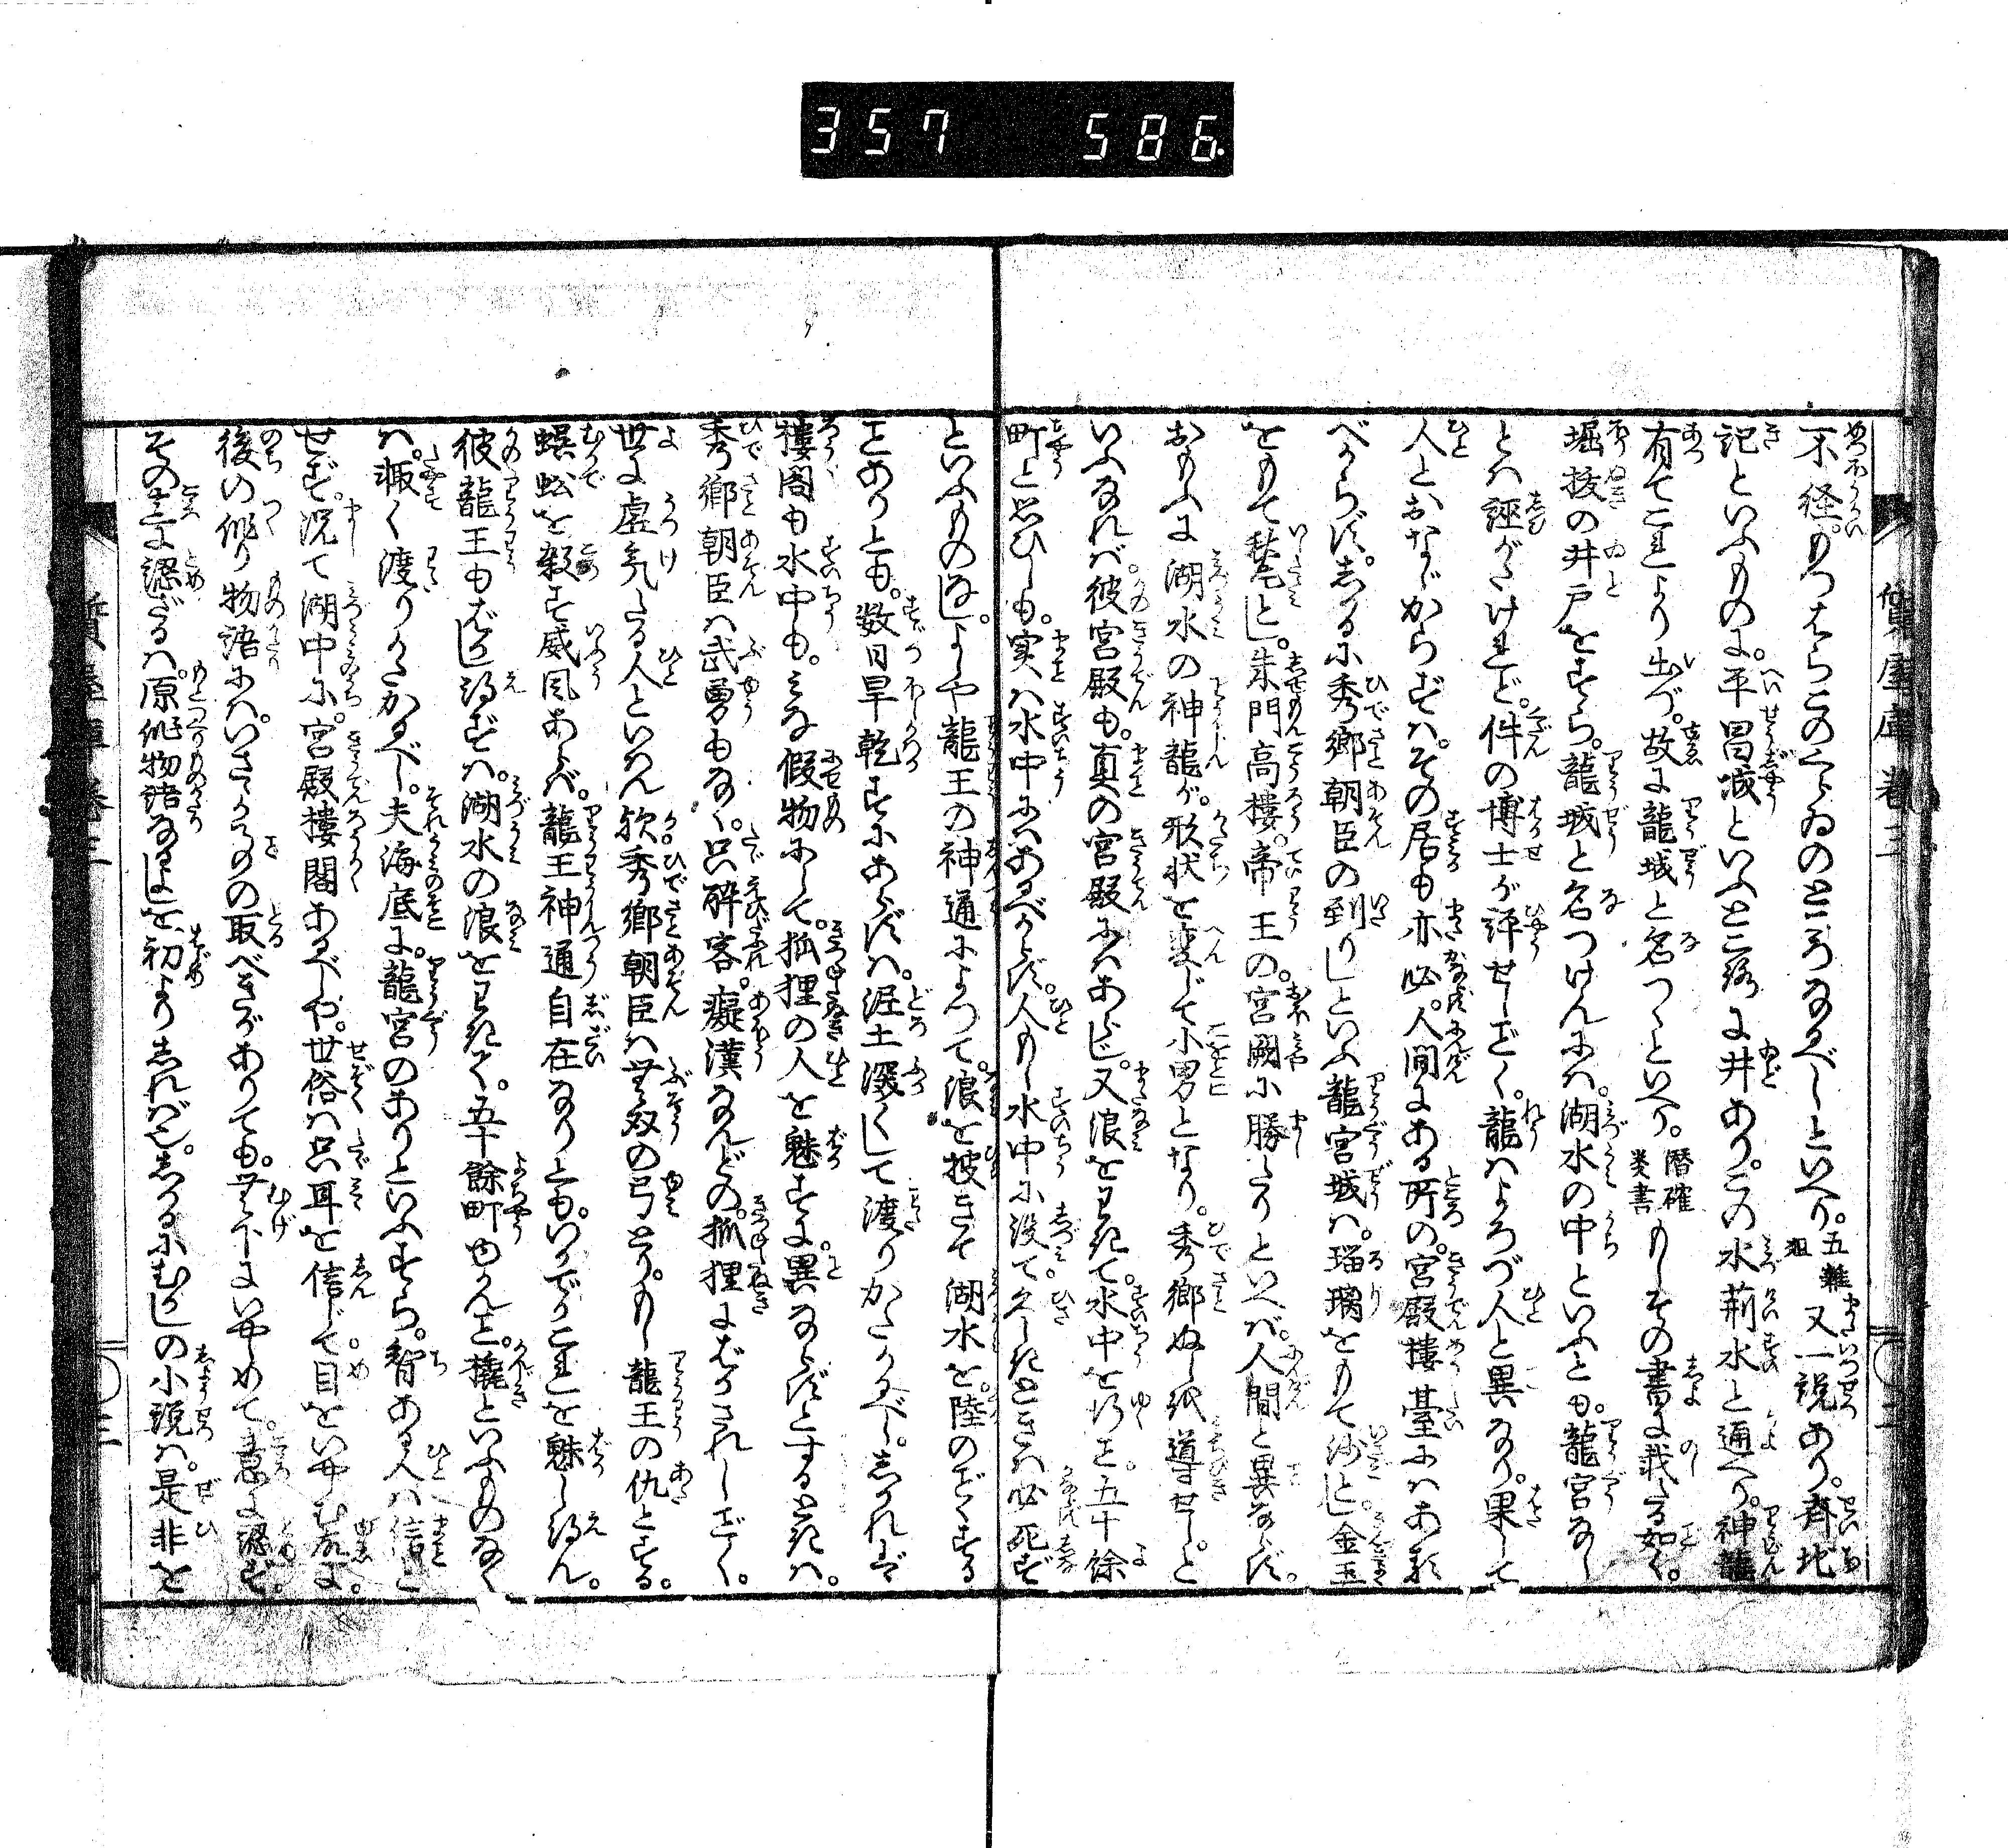 357 586
不経。もつはらこのくゐのところなるべしといへり。五雜俎 又一説あり。齊地
記といふものに。平昌城といふところに井あり。この水荊水と通へり。神龍
有てこれより出づ。故に龍城と名つくといへり。潛確類書 もしその書に載る如く。
堀抜の井戸をすら。龍城と名つけんには。湖水の中といふとも。龍宮なし
とは誣がたけれど。件の博士が評せしごとく。龍はよろづ人と異なり。果して
人とおなじからずは。その居も亦必。人間にある所の。宮殿樓臺にはある
べからず。しかるに秀郷朝臣の到りしといふ龍宮城は。瑠璃をもて沙とし。金玉
をもて甃とし。朱門高樓。帝王の。宮闕に勝たりといへば。人間と異ならず。
おもふに湖水の神龍が。形状を変じて小男となり。秀郷ぬしを導せしと
いふなれば。彼宮殿も。真の宮殿にはあらじ。又浪をわけて。水中を行こと。五十余
町と思ひしも。実は水中にはあるべからず。人もし水中に没て。久しきときは必死ず
といふものなし。よしや龍王の神通によつて。浪を披きて湖水を。陸のごとくする
ことありとも。数日旱乾すにあらずは。泥土深くして渡りかたかるべし。しかれば
樓閣も水中も。みな假物にして。狐狸の人を魅すに。異ならずとするときは。
秀郷朝臣は武勇もなく。只酔客。癡漢なんどの。狐狸にばかされしごとく。
世に虚気たる人といはん歟。秀郷朝臣は無双の弓とり。もし龍王の仇とする。
蜈蚣を殺す威風あらば。龍王神通自在なりとも。いかでかこれを魅し得ん。
彼龍王もばかし得ずは。湖水の浪をわけて。五十餘町ゆかんと。橇といふものなく
は。輙く渡りかたかるべし。夫海底に。龍宮のありといふすら。智ある人は信と
せず。况て湖中に。宮殿樓閣あるべしや。世俗は只耳を信じて。目をいやしむ故に。
後の作り物語には。いさゝかものの取べきがありても。無下にいやしめて。意に認ず。
その言に認ざるは。原作物語なるよしを。初よりしればぞ。しかるにむかしの小説は。是非を